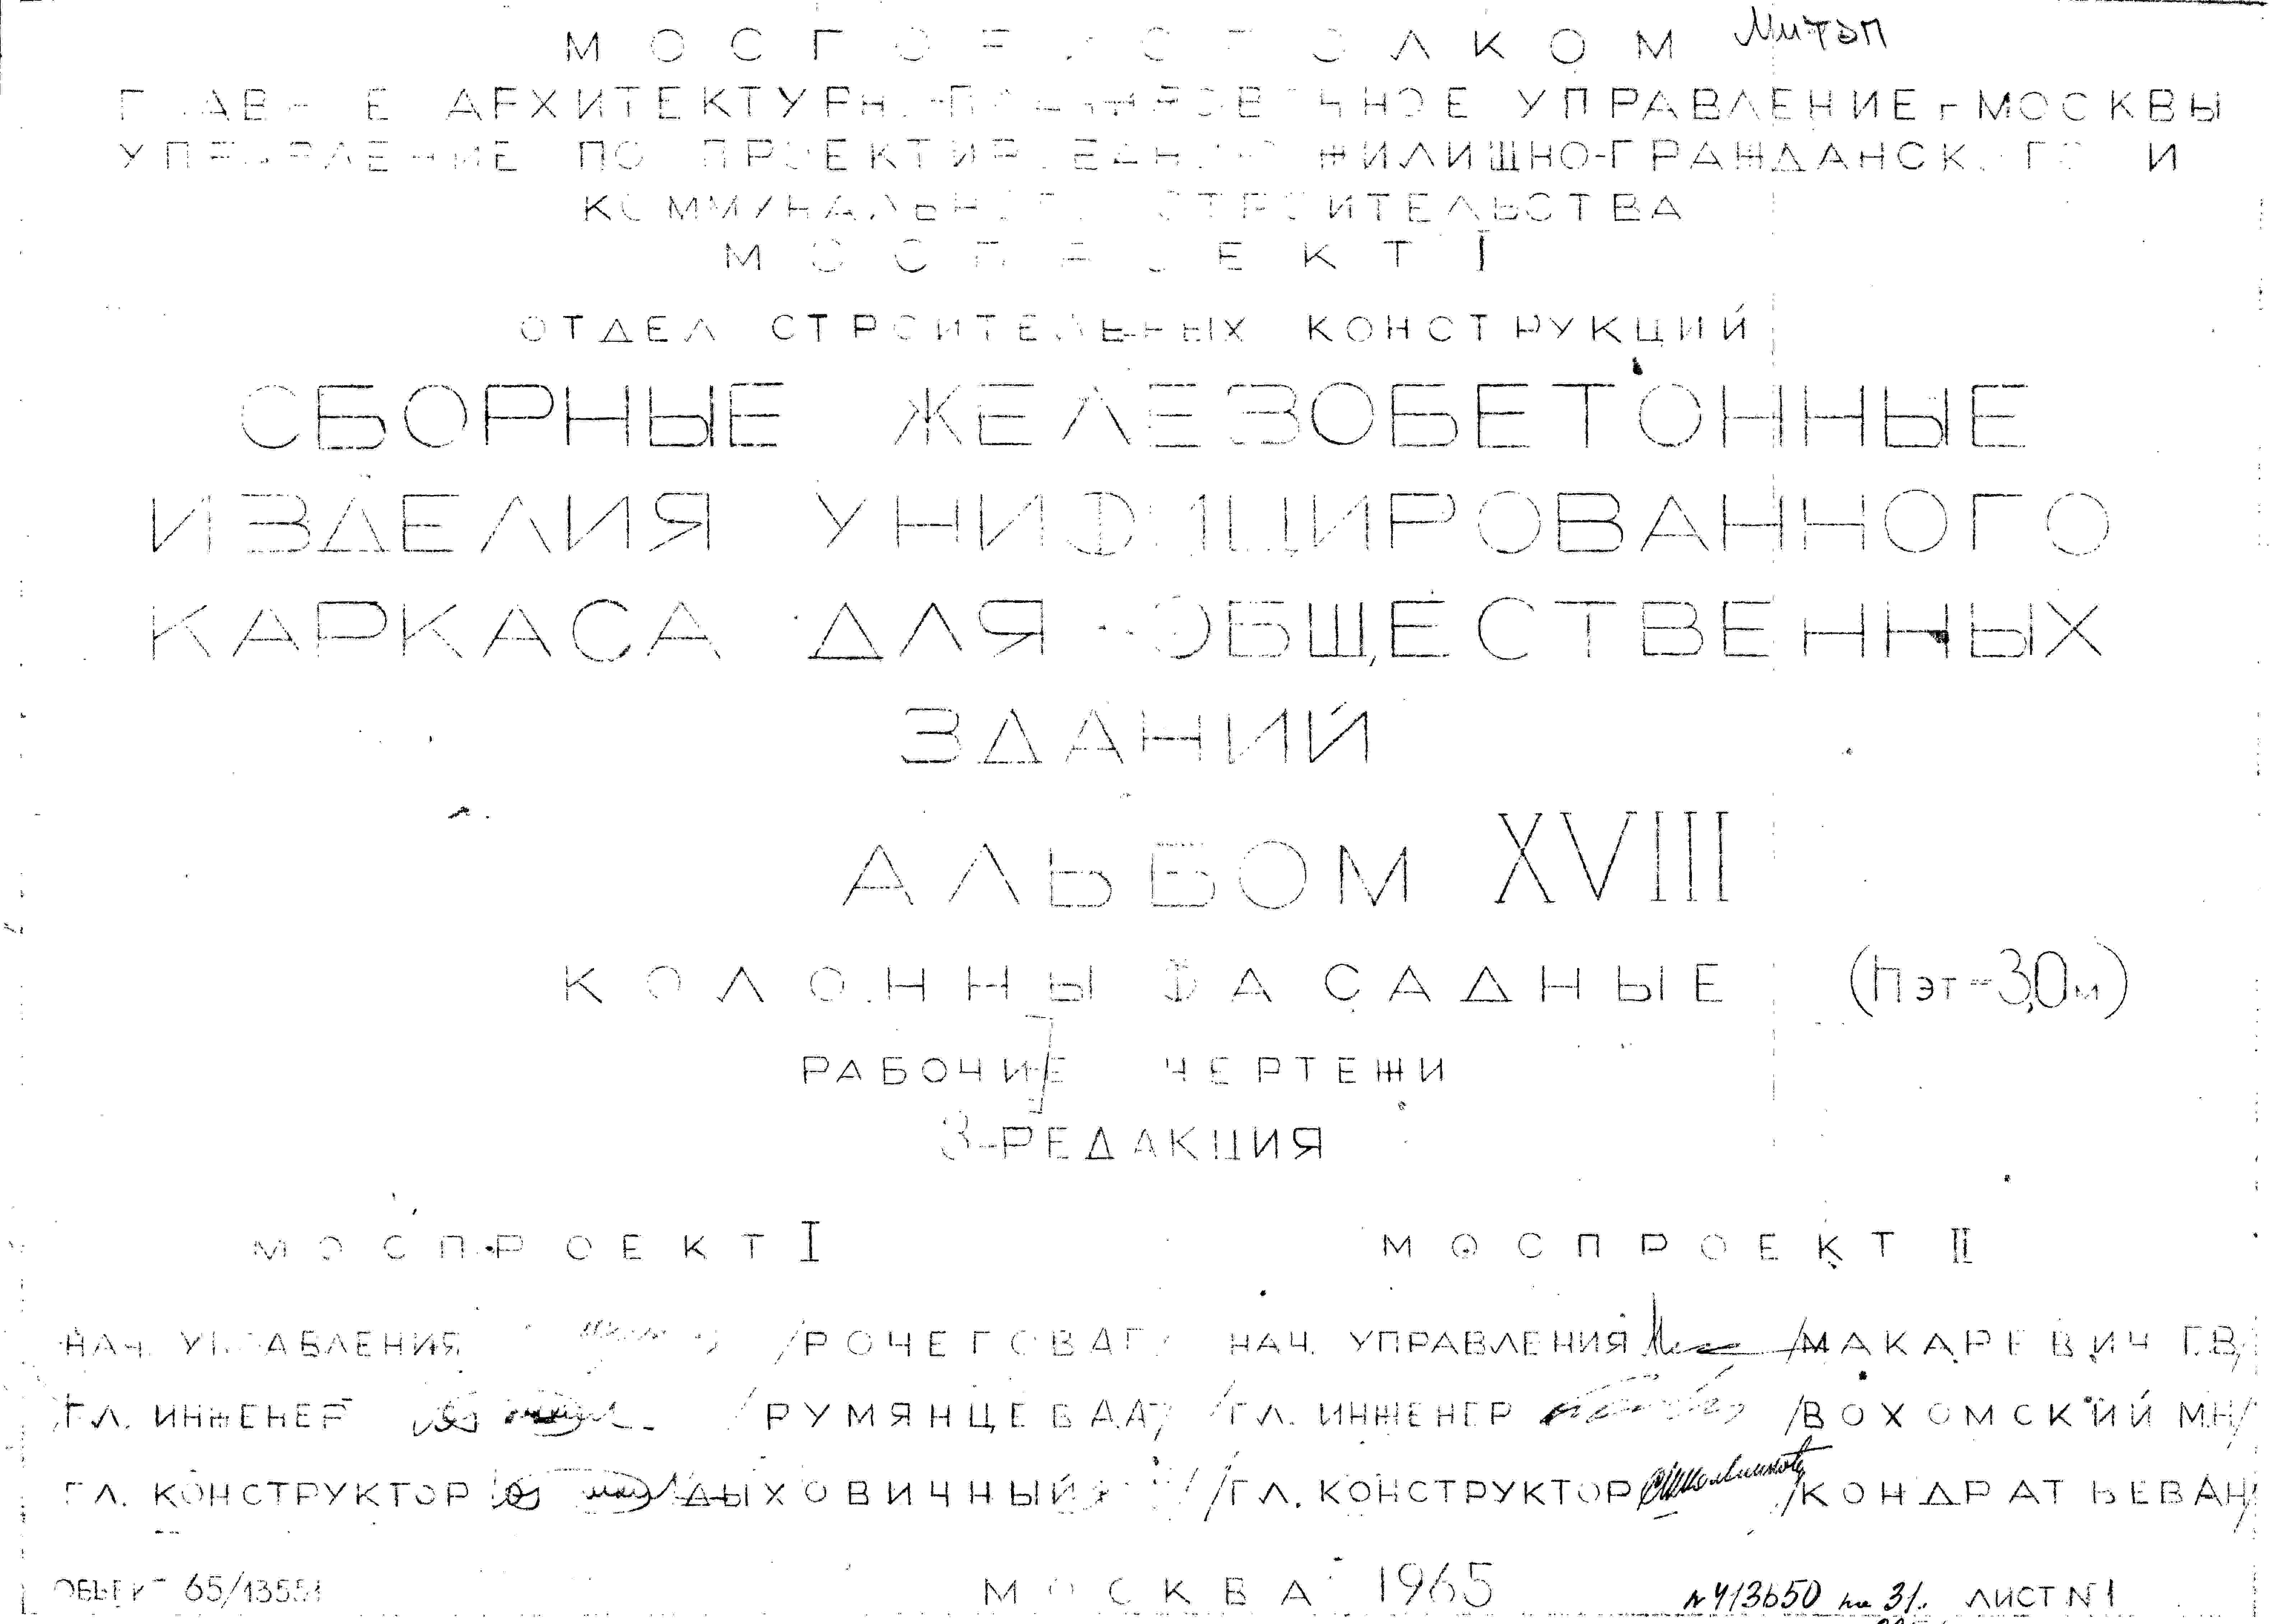 МОСГОРИСПОЛКОМ
ГЛАВНОЕ АРХИТЕКТУРНО-ПЛАНИРОВОЧНОЕ УПРАВЛЕНИЕ г. МОСКВЫ
УПРАВЛЕНИЕ ПО ПРОЕКТИРОВАНИЮ ЖИЛИЩНО-ГРАЖДАНСКОГО И
КОММУНАЛЬНОГО СТРОИТЕЛЬСТВА
МОСПРОЕКТ I
ОТДЕЛ СТРОИТЕЛЬНЫХ КОНСТРУКЦИЙ
СБОРНЫЕ ЖЕЛЕЗОБЕТОННЫЕ
ИЗДЕЛИЯ УНИФИЦИРОВАННОГО
КАРКАСА ДЛЯ ОБЩЕСТВЕННЫХ
ЗДАНИЙ
АЛЬБОМ XVIII
КОЛОННЫ ФАСАДНЫЕ (hэт=3,0м)
РАБОЧИЕ ЧЕРТЕЖИ
3-РЕДАКЦИЯ
МОСПРОЕКТ I МОСПРОЕКТ II
НАЧ. УПРАВЛЕНИЯ /РОЧЕГОВ А.Г./ НАЧ. УПРАВЛЕНИЯ /МАКАРЕВИЧ Г.В/
ГЛ. ИНЖЕНЕР /РУМЯНЦЕВ А.А/ ГЛ. ИНЖЕНЕР /ВОХОМСКИЙ М.Н/
ГЛ. КОНСТРУКТОР /ДЫХОВИЧНЫЙ ГЛ. КОНСТРУКТОР /КОНДРАТЬЕВ А.Н/
ОБЪЕКТ 65/13551 МОСКВА 1965 N413650 на 31л. ЛИСТ N1